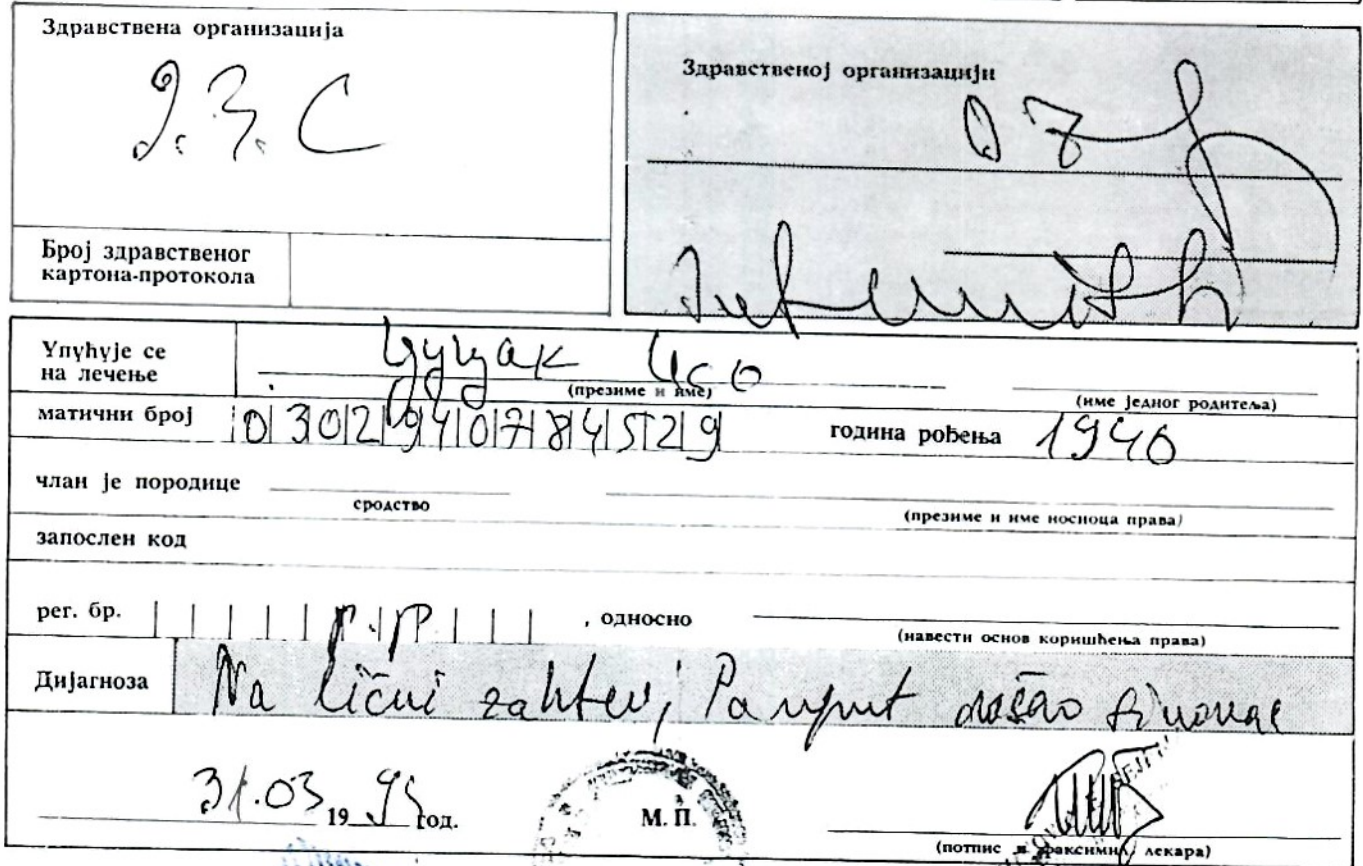 Здравствена организација
Д.З. С
Број здравственог
картона-протокола
Здравственој организацији
Упућује се
на лечење
Цуцак Исо
(презиме и име)
(име једног родитеља)
матични број 0302940784529 година рођења 1940
члан је породице
сродство
(презиме и име носиоца права)
запослен код
рег. бр. , односно
P.P
(навести основ коришћења права)
Дијагноза Na lični zahtev, Po uput došao sinovac
31.03 1995 год.
М. П.
(потпис и факсимил лекара)